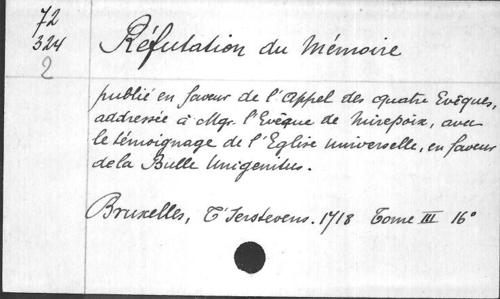 72
324
2
Réfutation du Mémoire
publié en faveur de l'Appel des quatre Evêques,
addressée à Mgr. l'Evêque de Mirepoix, avec
le témoignage de l'Eglise Universelle, en faveur
de la Bulle Unigenitus.
Bruxelles, T'Serstevens. 1718 Tome III 16°